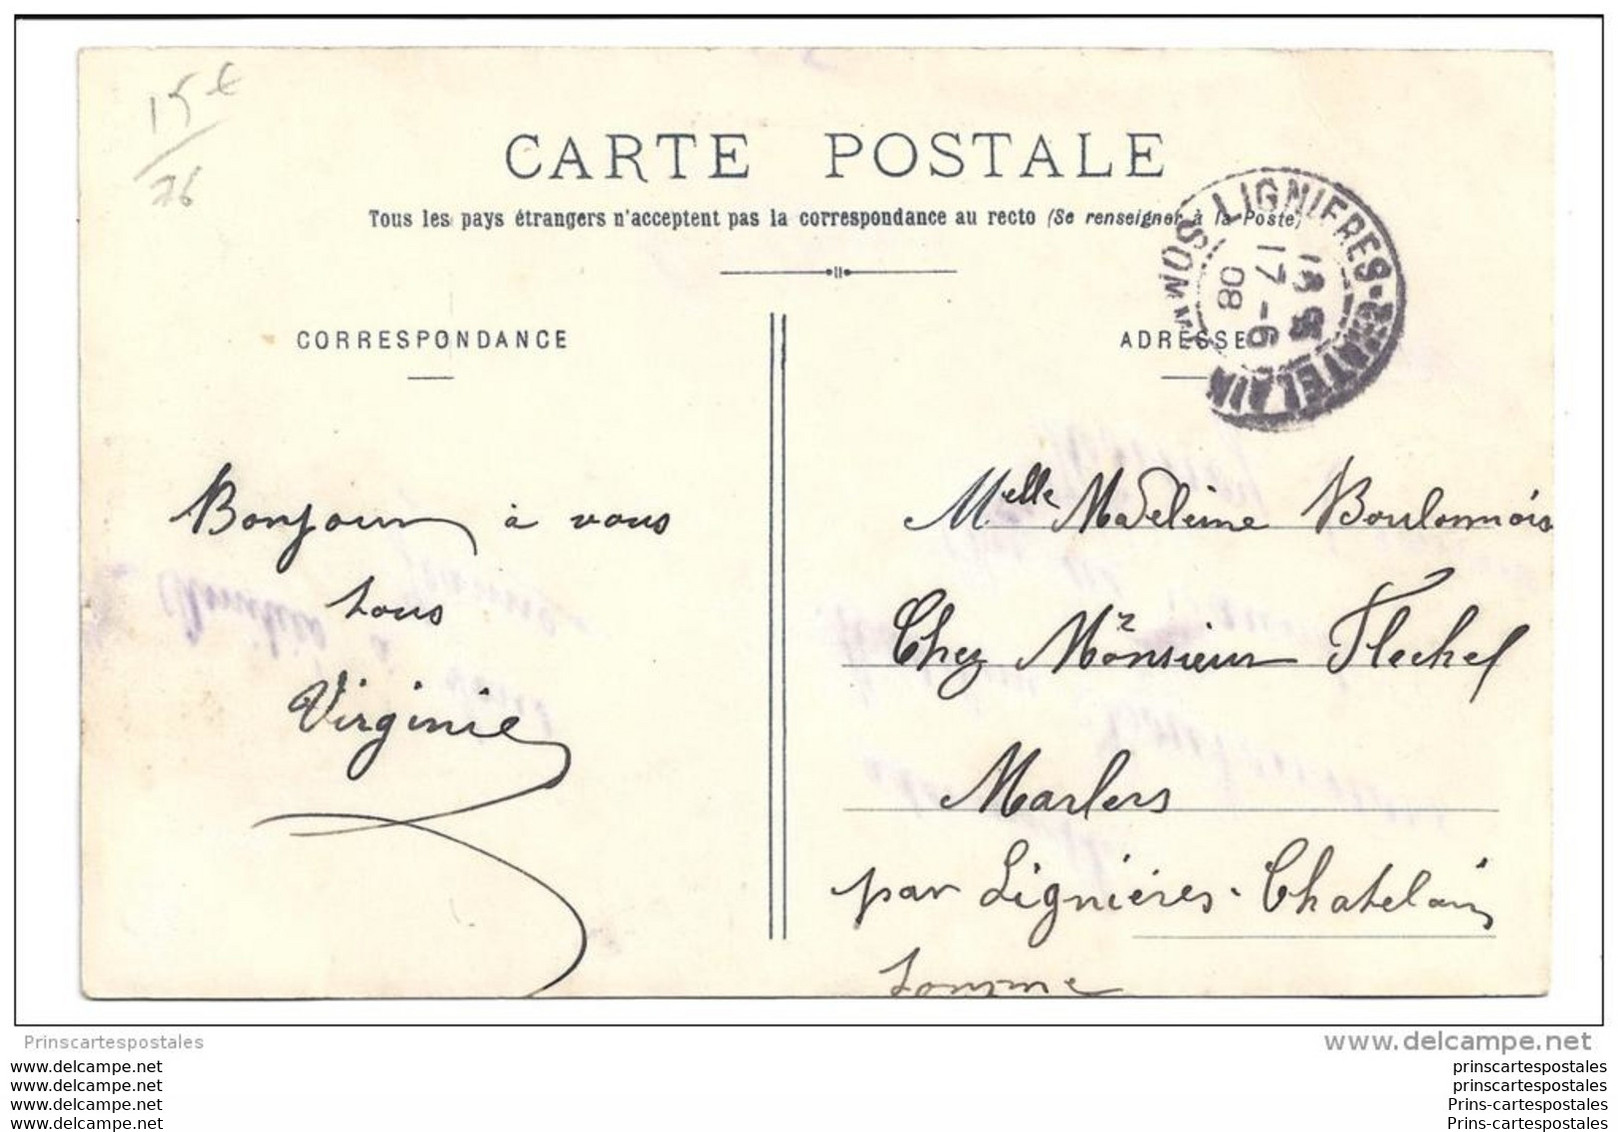 15€
76
CARTE POSTALE
Tous les pays étrangers n'acceptent pas la correspondance au recto (Se renseigner à la Poste)
LIGNIERES-CHATELAIN
SOMME
17 -6
08
CORRESPONDANCE
ADRESSE
Bonjour à vous
tous
Virginie
Melle Madeleine Boulonnois
Chez Mr Monsieur Flechel
Marlers
par Lignières-Chatelain
Somme
Prinscartespostales
www.delcampe.net
www.delcampe.net
www.delcampe.net
www.delcampe.net
www.delcampe.net
prinscartespostales
prinscartespostales
Prins-cartespostales
Prins-cartespostales